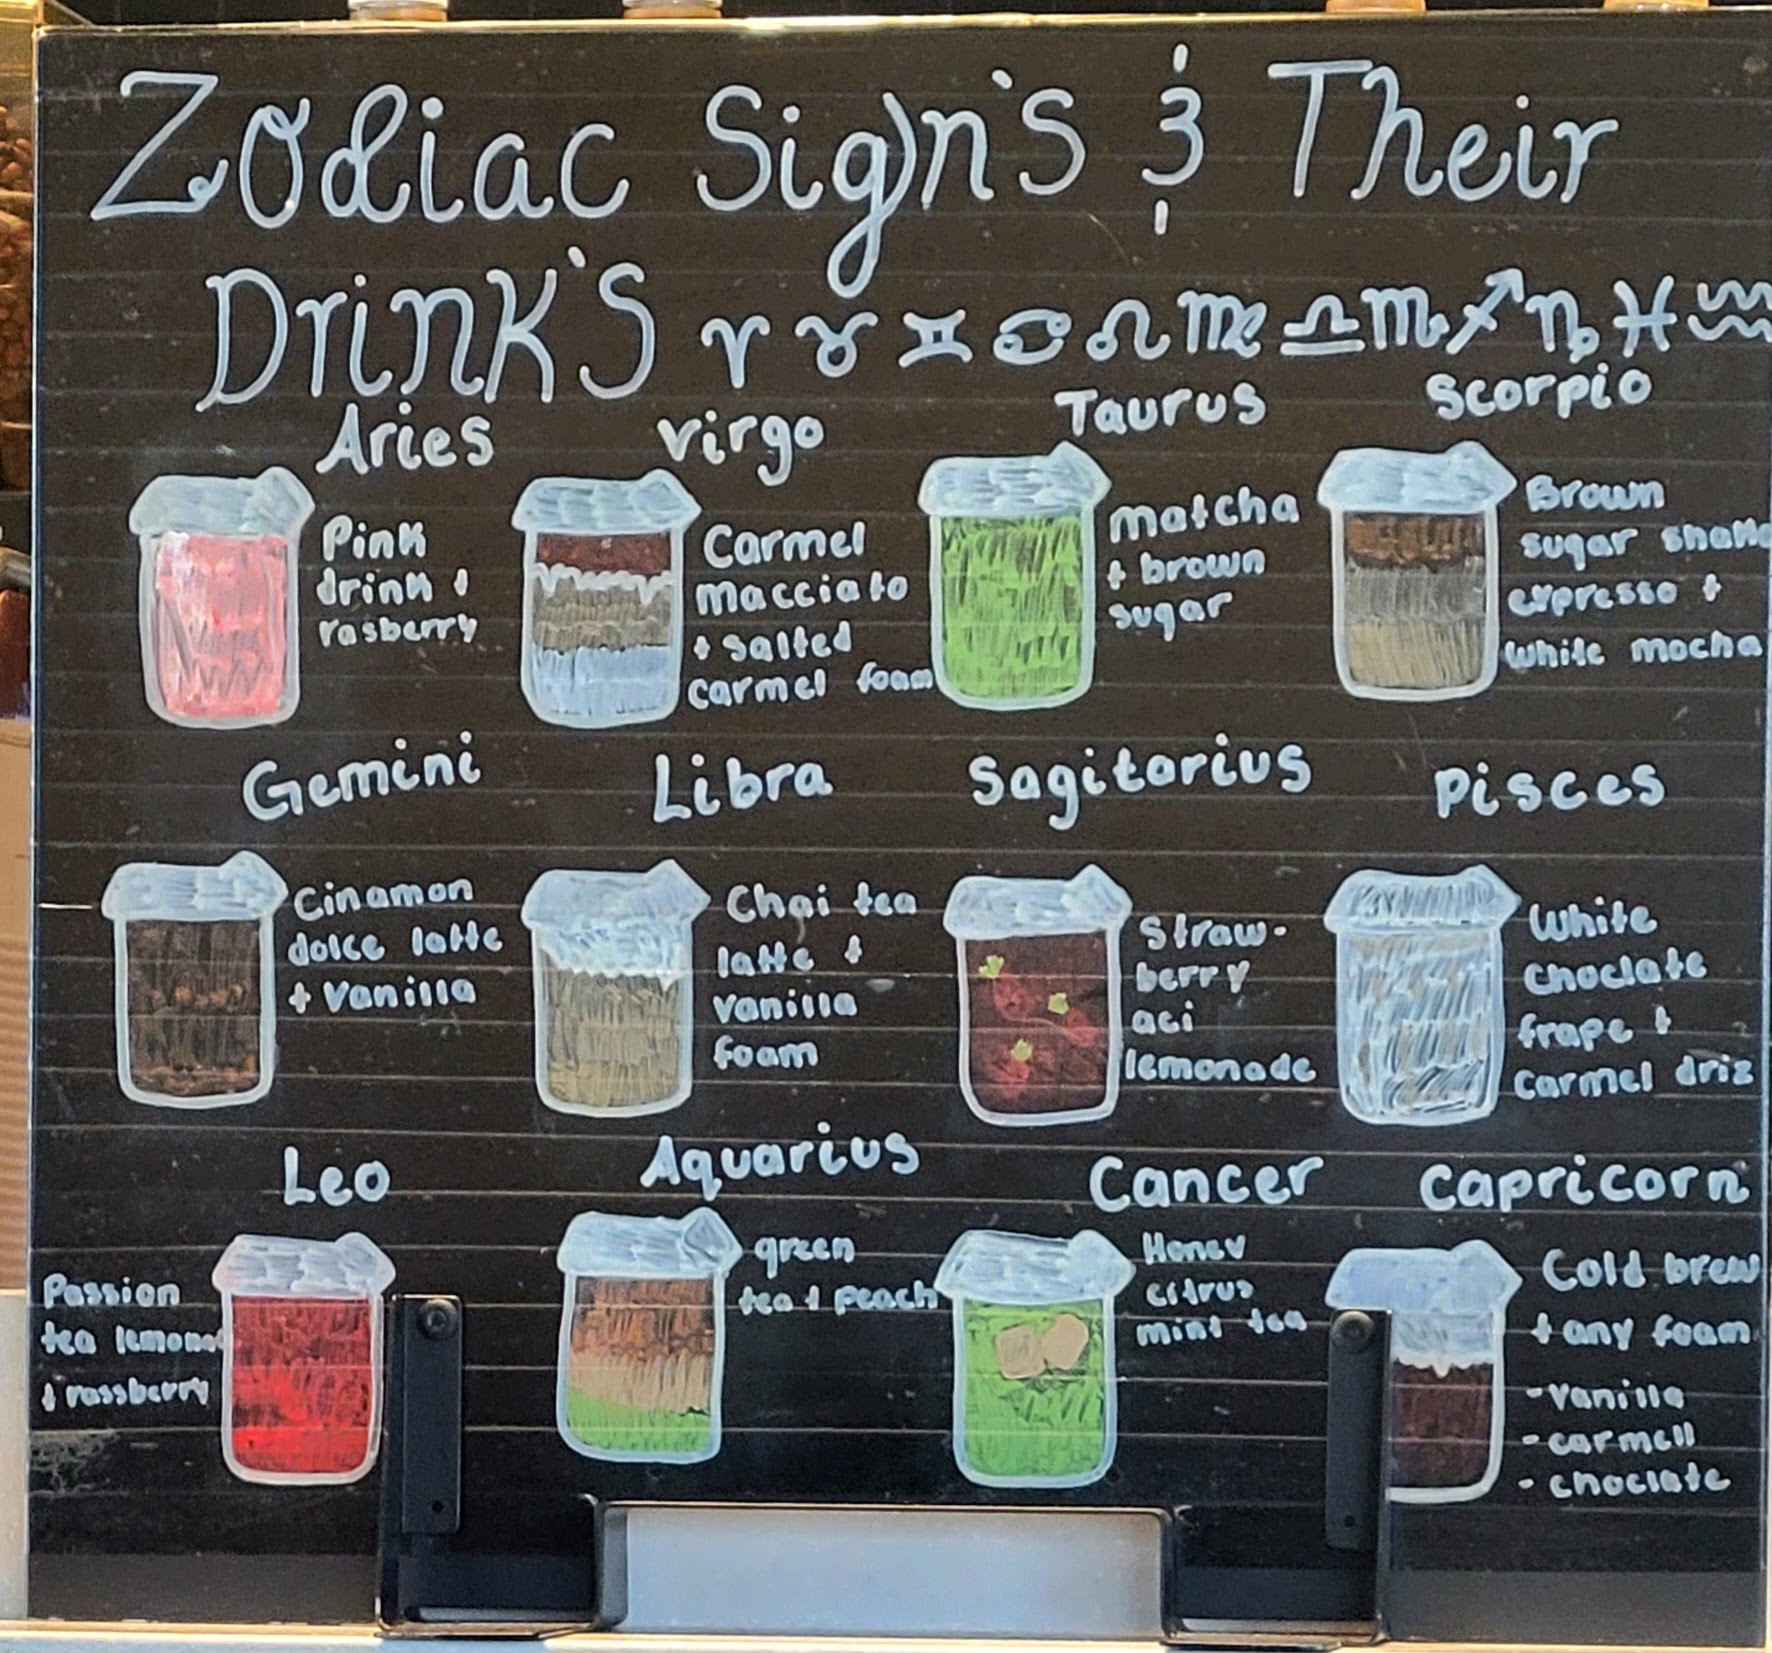 Zodiac Sign's & Their
Drink's ♈ ♉ ♊ ♋ ♌ ♍ ♎ ♏ ♐ ♑ ♓ ♒
Aries
Pink
drink +
rasberry
Virgo
Carmel
macciato
+ salted
carmel foam
Taurus
matcha
+ brown
sugar
Scorpio
Brown
sugar shake
expresso +
white mocha
Gemini
Cinamon
dolce latte
+ vanilla
Libra
Chai tea
latte +
vanilla
foam
Sagitarius
Straw-
berry
aci
lemonade
Pisces
White
choclate
frape +
carmel driz
Leo
Passion
tea lemonad
+ rassberry
Aquarius
green
tea + peach
Cancer
Honey
citrus
mint tea
Capricorn
Cold brew
+ any foam
- vanilla
- carmell
- choclate